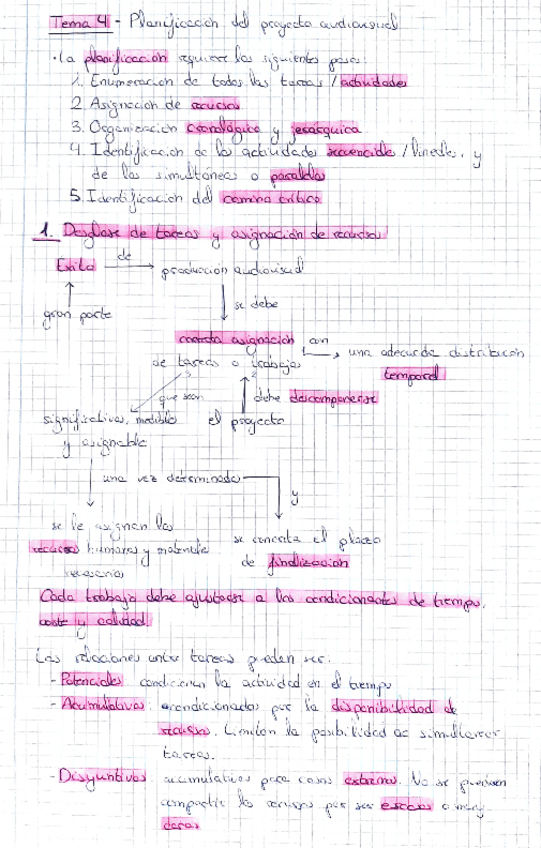 Tema 4 - Planificación del proyecto audiovisual
· La planificación requiere los siguientes pasos:
1. Enumeración de todas las tareas / actividades
2. Asignación de recursos
3. Organización cronológica y jerárquica
4. Identificación de las actividades secuenciales / lineales, y
de las simultáneas o paralelas
5. Identificación del camino crítico
1. Desglose de tareas y asignación de recursos
Éxito de producción audiovisual
gran parte
se debe
correcta asignación con
de tareas o trabajos
una adecuada distribución
temporal
que sean
debe descomponerse
significativas, medibles
el proyecto
y asignable
una vez determinado
y
se le asignan los
recursos humanos y materiales
necesarios
se concreta el plazo
de finalización
Cada trabajo debe ajustarse a los condicionantes de tiempo,
coste y calidad.
Las relaciones entre tareas pueden ser:
- Potenciales: condicionan la actividad en el tiempo
- Acumulativas: condicionadas por la disponibilidad de
recursos. Limitan la posibilidad de simultanear
tareas.
- Disyuntivas: acumulativas para casos extremos. No se pueden
compartir los recursos por ser escasos o muy
caros